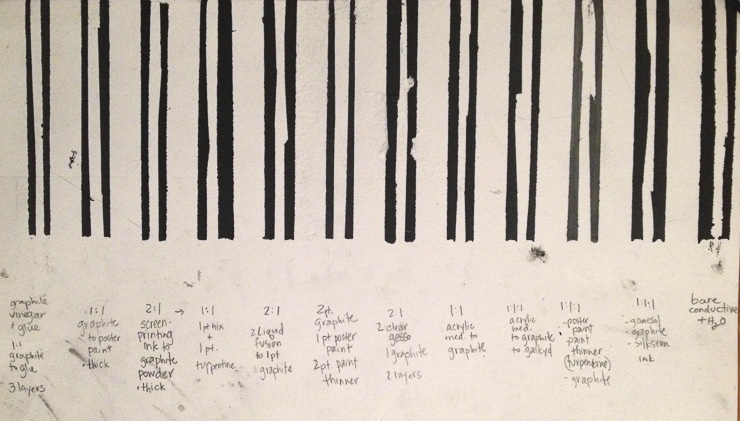 graphite
vinegar
+ glue
1:1
graphite
to glue
3 layers
1:1
graphite
to poster
paint
• thick
2:1 →
screen-
printing
ink to
graphite
powder
• thick
1:1
1 pt mix
+
1 pt.
turpentine
2:1
2 Liquid
fusion
to 1 pt
graphite
2pt.
graphite
1 pt poster
paint
2 pt. paint
thinner
2:1
2 clear
gesso
1 graphite
2 layers
1:1
acrylic
med. to
graphite
1:1:1
acrylic
med.
to graphite
to galkyd
1:1:1
- poster
paint
- paint
thinner
(turpentine)
- graphite
1:1:1
graphite
- silkscreen
ink
bare
conductive
+ H2O